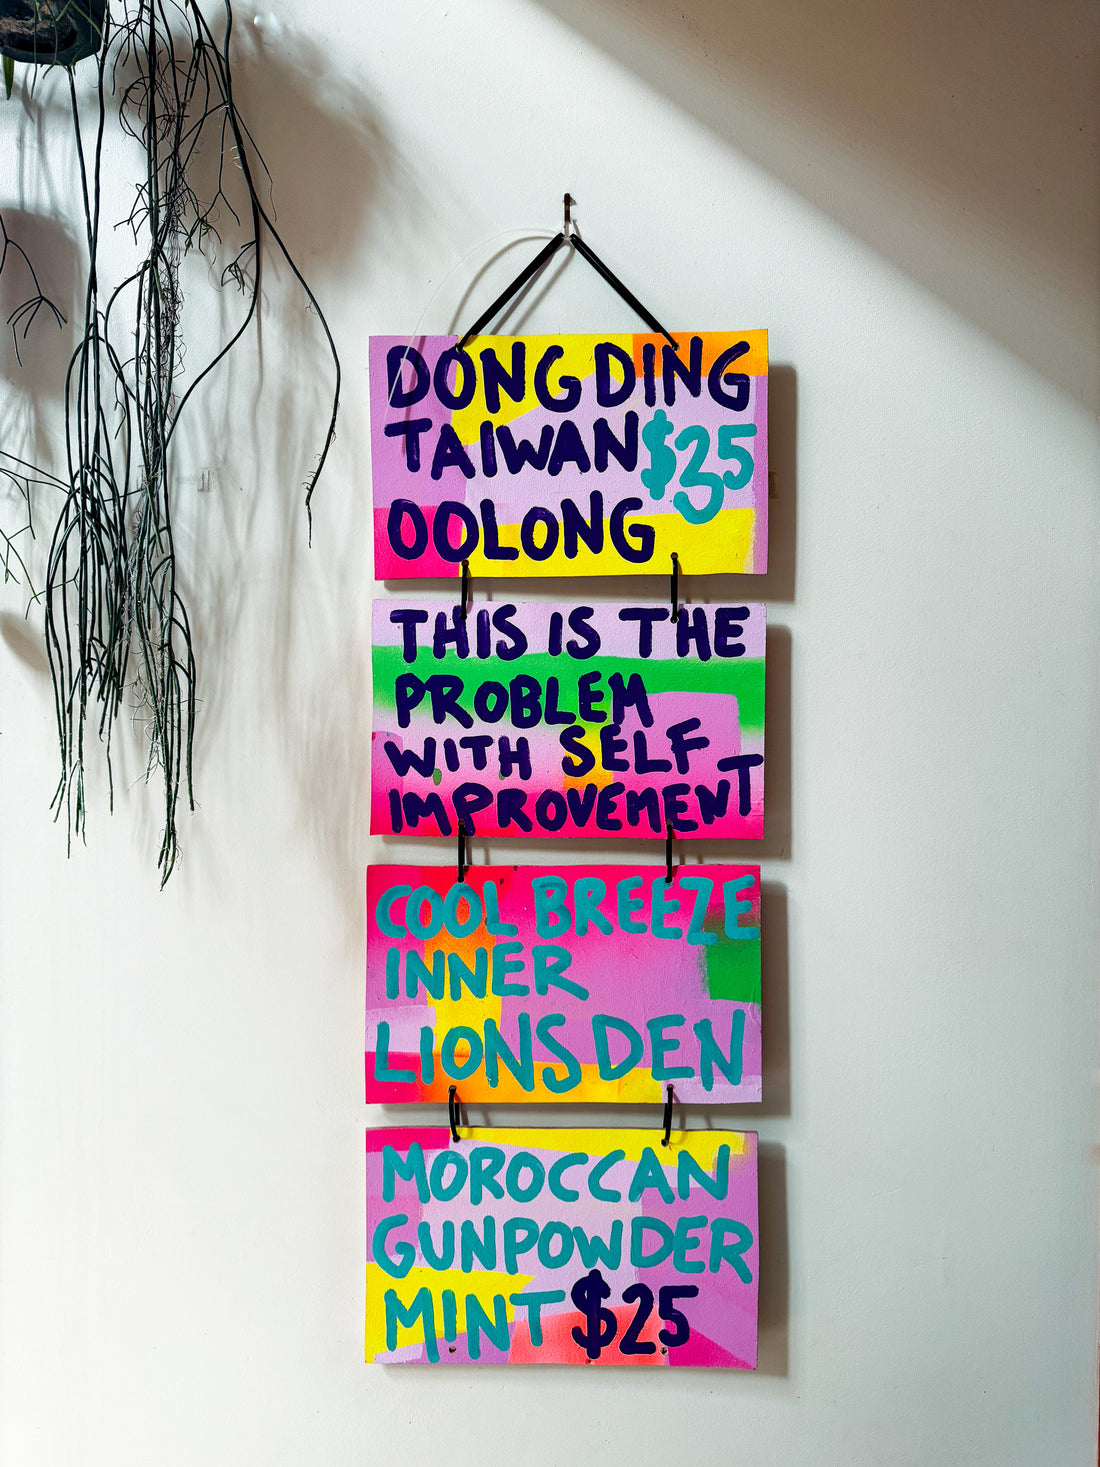 DONG DING
TAIWAN $35
OOLONG
THIS IS THE
PROBLEM
WITH SELF
IMPROVEMENT
COOL BREEZE
INNER
LIONS DEN
MOROCCAN
GUNPOWDER
MINT $25